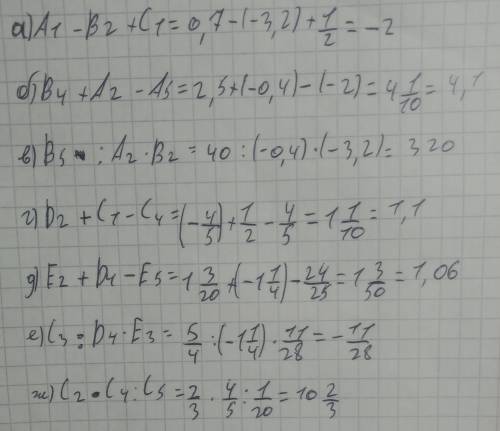 а) A1 - B2 + C1 = 0,7 - (-3,2) + 1/2 = -2
б) B4 + A2 - A5 = 2,5 + (-0,4) - (-2) = 4 1/10 = 4,1
в) B5 : A2 · B2 = 40 : (-0,4) · (-3,2) = 320
г) D2 + C1 - C4 = (-4/5) + 1/2 - 4/5 = 1 1/10 = 1,1
д) E2 + D4 - E5 = 1 3/20 + (-1 1/4) - 24/25 = 1 3/50 = 1,06
е) C3 : D4 · E3 = 5/4 : (-1 1/4) · 11/28 = -11/28
ж) C2 · C4 : C5 = 2/3 · 4/5 : 1/20 = 10 2/3